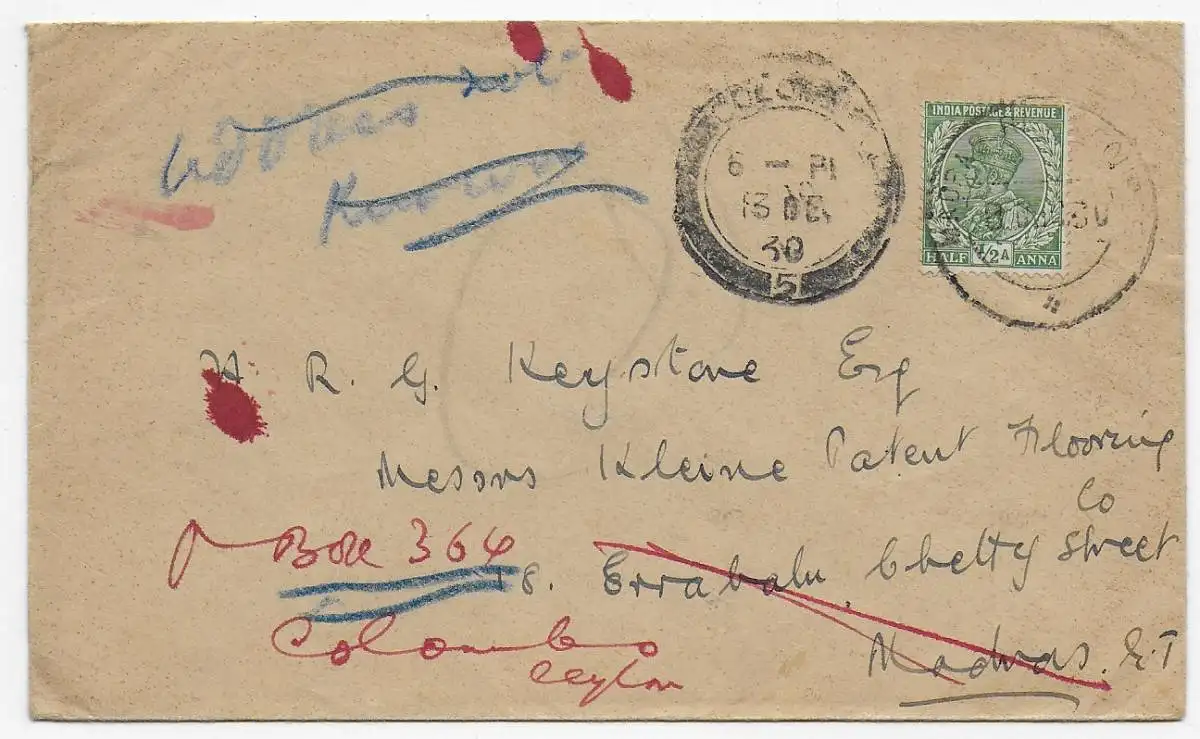 Address not
Known
COLOMBO
6 - PM
15 DE
30
5
INDIA POSTAGE & REVENUE
HALF 1/2 A ANNA
MADRAS
H. R. G. Keystone Esq
Messrs Kleine Patent Flooring
Co
18. Errabalu Chetty Street
Madras. E.T
P Box 364
Colombo
Ceylon